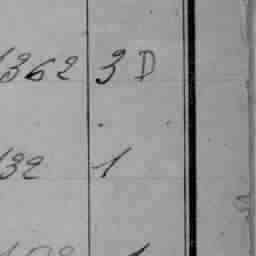 1362 3 D
132 1